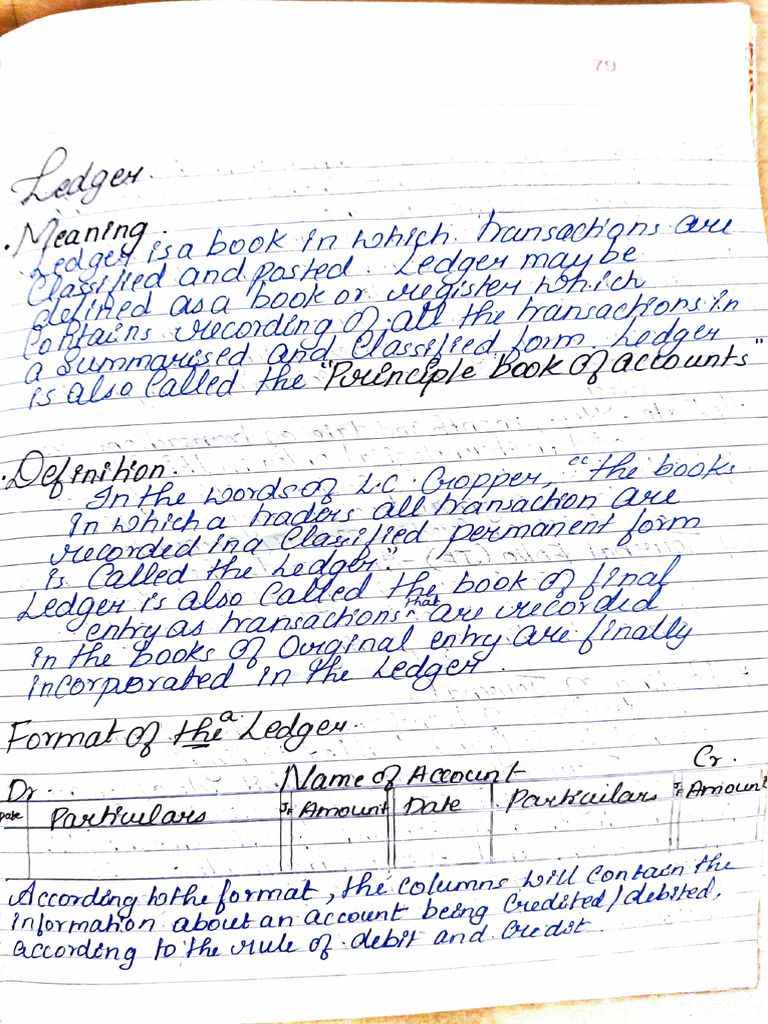 79
Ledger.
. Meaning.
Ledger is a book in which transactions are
Classified and posted. Ledger may be
defined as a book or register which
Contains recording of all the transactions in
a Summarised and Classified form. Ledger
is also Called the "Principle Book of accounts"
. Definition.
In the words of L.C. Cropper, "the books
in which a traders all transaction are
recorded in a Classified permanent form
is Called the Ledger".
Ledger is also Called the book of final
entry as transactions that are recorded
in the books of Original entry are finally
incorporated in the Ledger.
Format of the a Ledger.
Dr. Name of Account Cr.
Date Particulars JF Amount Date Particulars JF Amount
According to the format, the columns will contain the
information about an account being Credited/debited,
according to the rule of debit and credit.